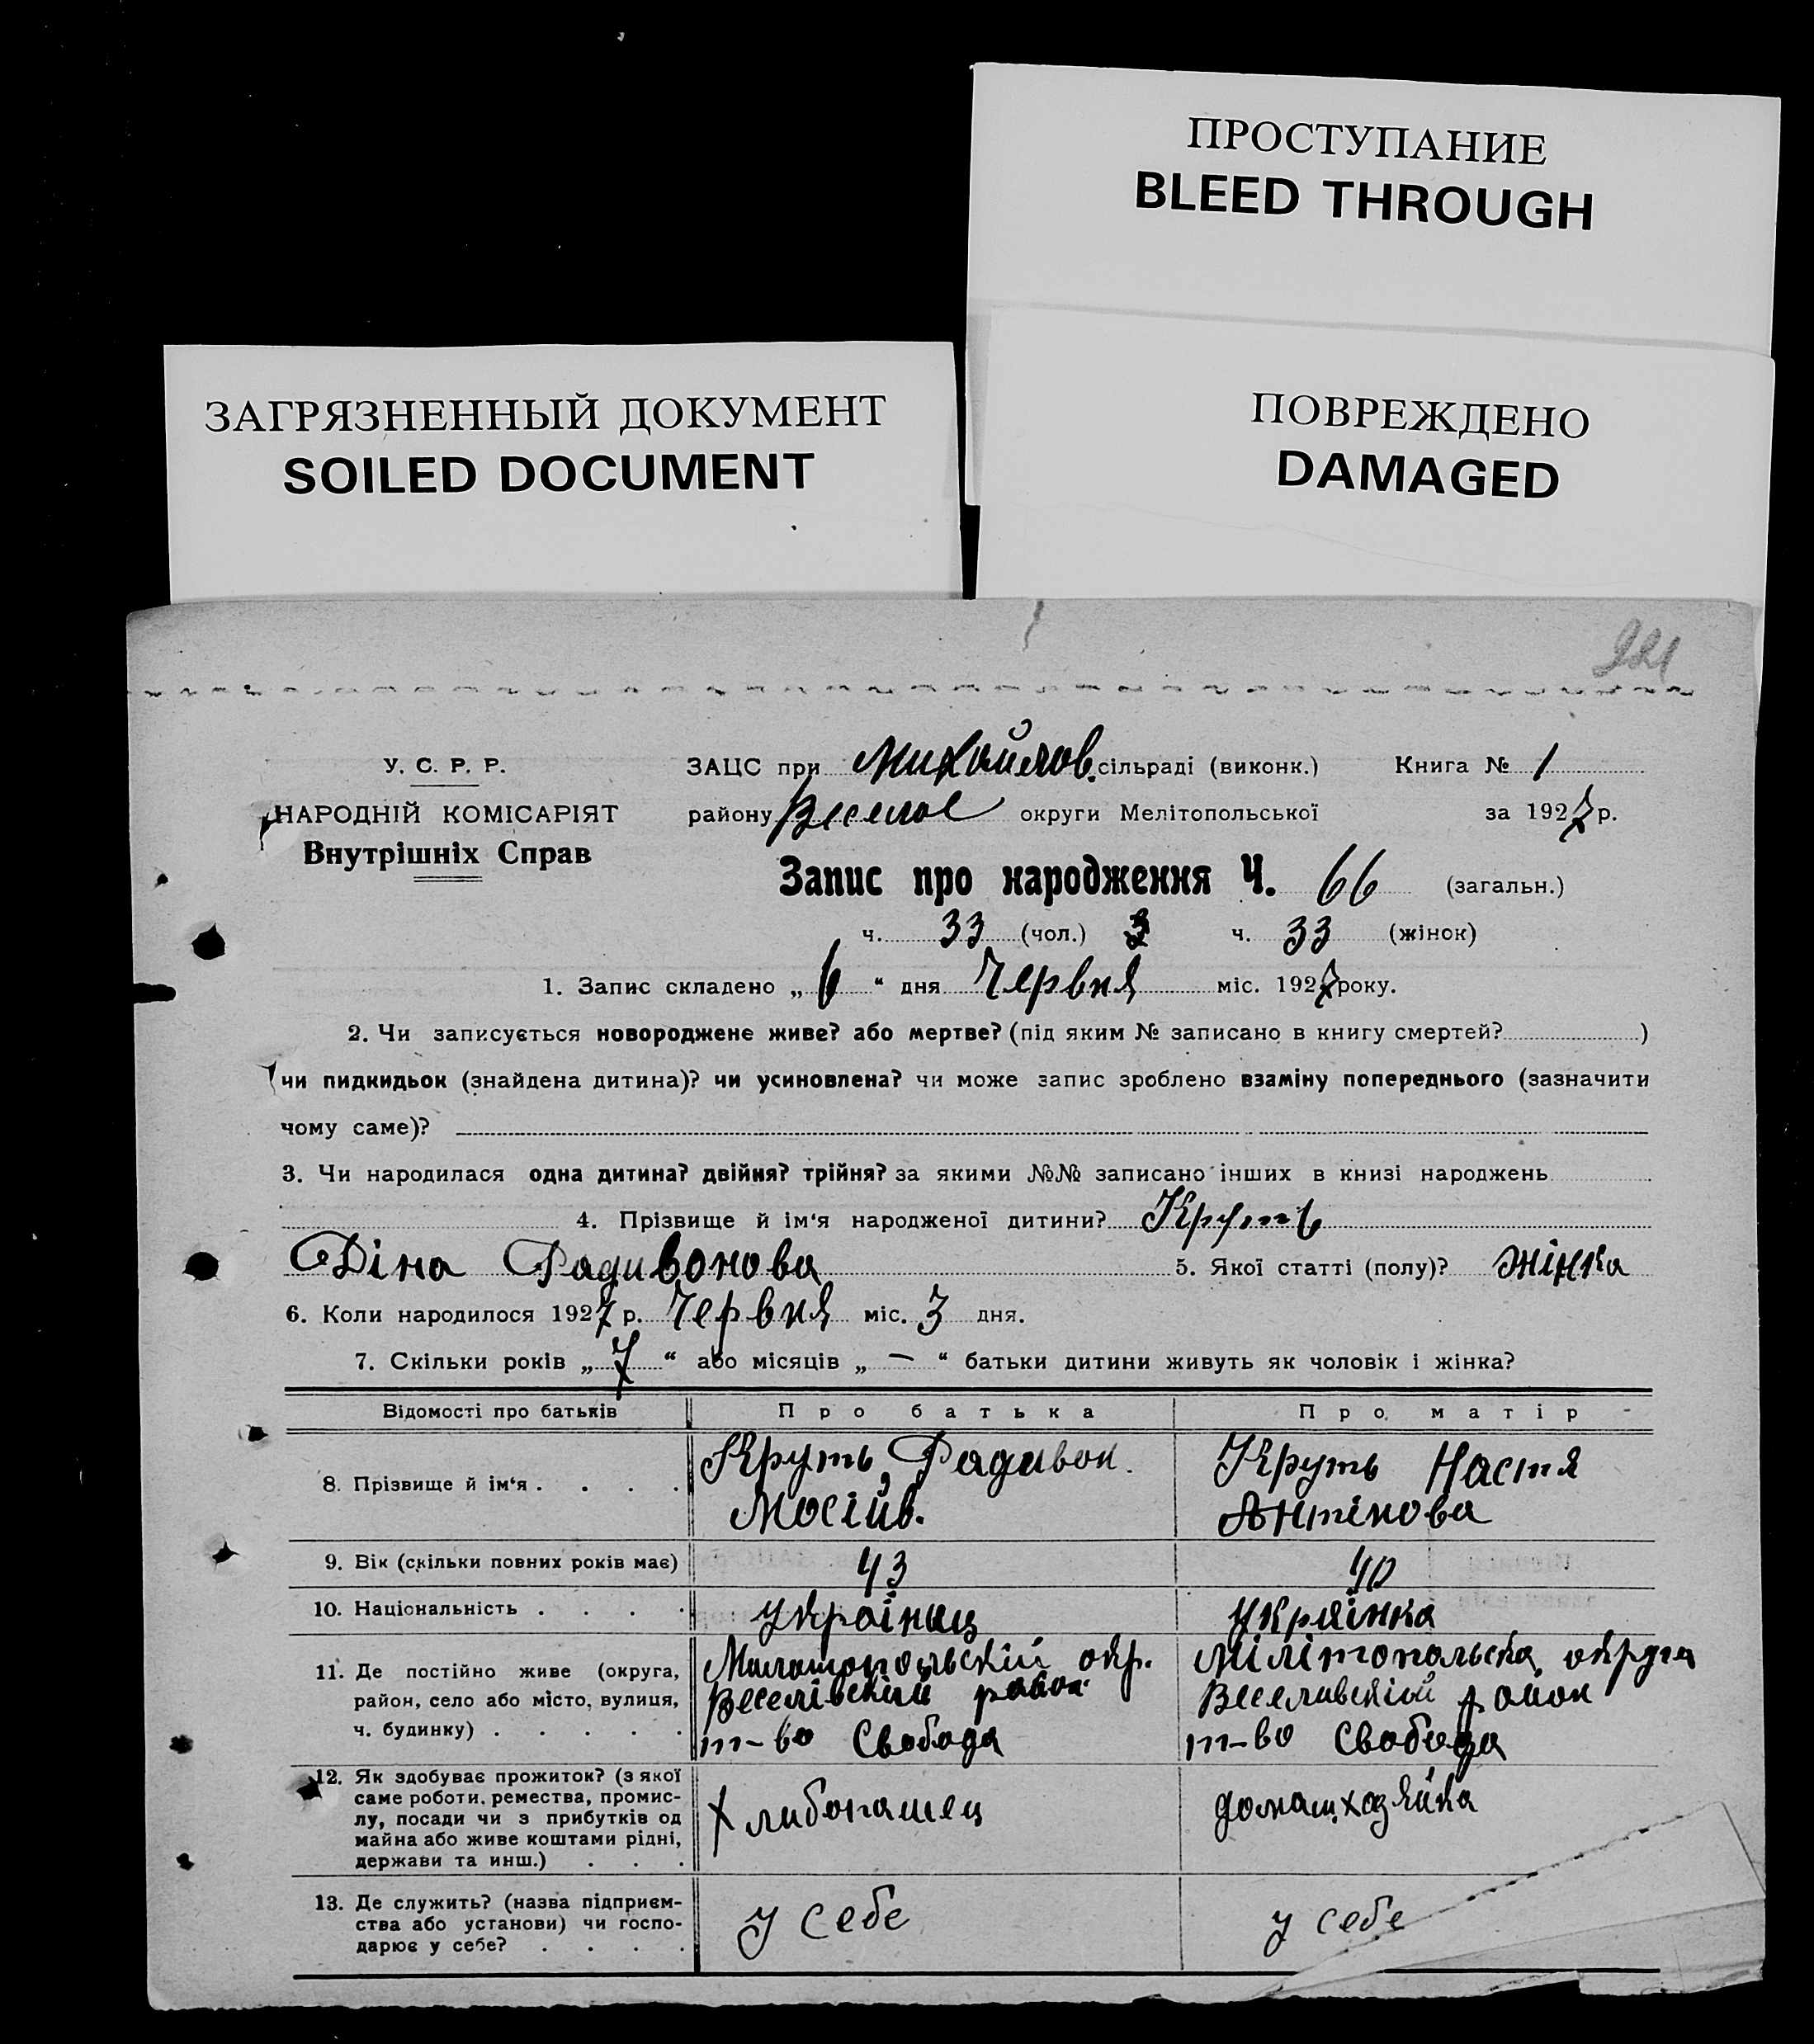 ПРОСТУПАНИЕ
BLEED THROUGH
ЗАГРЯЗНЕННЫЙ ДОКУМЕНТ
SOILED DOCUMENT
ПОВРЕЖДЕНО
DAMAGED
221
У. С. Р. Р.
НАРОДНІЙ КОМІСАРІЯТ
Внутрішніх Справ
ЗАЦС при Михайлов. сільраді (виконк.) Книга № 1
району Веселое округи Мелітопольської за 1927 р.
Запис про народження Ч. 66 (загальн.)
ч. 33 (чол.) ч. 33 (жінок)
1. Запис складено „ 6 “ дня Червня міс. 1927 року.
2. Чи записується новороджене живе? або мертве? (під яким № записано в книгу смертей? )
чи пидкидьок (знайдена дитина)? чи усиновлена? чи може запис зроблено взаміну попереднього (зазначити
чому саме)?
3. Чи народилася одна дитина? двійня? трійня? за якими №№ записано інших в книзі народжень
4. Прізвище й ім‘я народженої дитини? Круть
Діна Радивонова 5. Якої статті (полу)? жінка
6. Коли народилося 1927 р. Червня міс. 3 дня.
7. Скільки років „ 7 “ або місяців „ — “ батьки дитини живуть як чоловік і жінка?
Відомості про батьків Про батька Про матір
8. Прізвище й ім‘я . . . . Круть, Радивон. Круть Настя
Мосійв. Антінова
9. Вік (скільки повних років має) 43 40
10. Національність . . . . Україниц Українка
11. Де постійно живе (округа, Милитопольскій окр. Мілітопольска округа
район, село або місто, вулиця, Веселівский район Веселивскій район
ч. будинку) . . . . . т-во Свобода т-во Свобода
12. Як здобуває прожиток? (з якої
саме роботи, ремества, промис-
лу, посади чи з прибутків од Хлибопашец домаш. хозяйка
майна або живе коштами рідні,
держави та инш.) . . .
13. Де служить? (назва підприєм-
ства або установи) чи госпо- у себе у себе
дарює у себе? . . . .